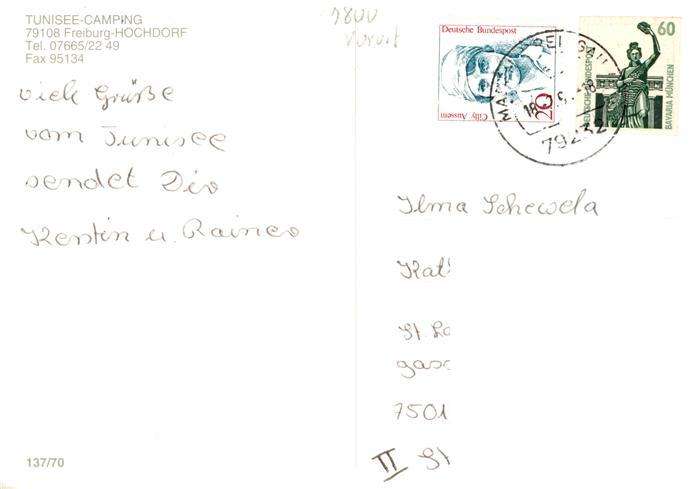 TUNISEE-CAMPING
79108 Freiburg-HOCHDORF
Tel. 07665/22 49
Fax 95134
viele Grüße
vom Tunisee
sendet Dir
Kerstin u. Rainer
137/70
Deutsche Bundespost
Cilly Aussem
20
60
DEUTSCHE BUNDESPOST
BAVARIA MÜNCHEN
79232
Ilma Schewela
Kat
St
7501
II St